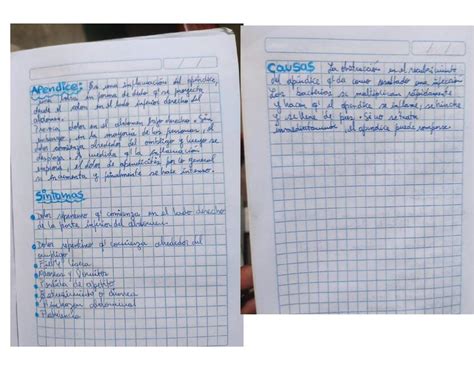 Apendice: Es una inflamación del apéndice,
una bolsa en forma de dedo qᵉ se proyecta
desde el colon en el lado inferior derecho del
abdomen.
dolor en el abdomen bajo derecho. Sin
embargo, en la mayoría de las personas, el
dolor comienza alrededor del ombligo y luego se
desplaza. A medida qᵉ la inflamación
empeora, el dolor de apendicitis por lo general
se incrementa y finalmente se hace intenso.
Síntomas
Dolor repentino qᵉ comienza en el lado derecho
de la parte inferior del abdomen.
Dolor repentino qᵉ comienza alrededor del
ombligo
Fiebre ligera
Náuseas y Vómitos
Perdida de apetito
Estreñimiento o diarrea
Hinchazon abdominal
Flatulencia
Causas La obstrucción en el recubrimiento
del apéndice qᵉ da como resultado una infección
Las bacterias se multiplican rápidamente
y hacen qᵉ el apéndice se inflame, se hinche
y se llene de pus. Si no se trata
inmediatamente, el apéndice puede romperse.